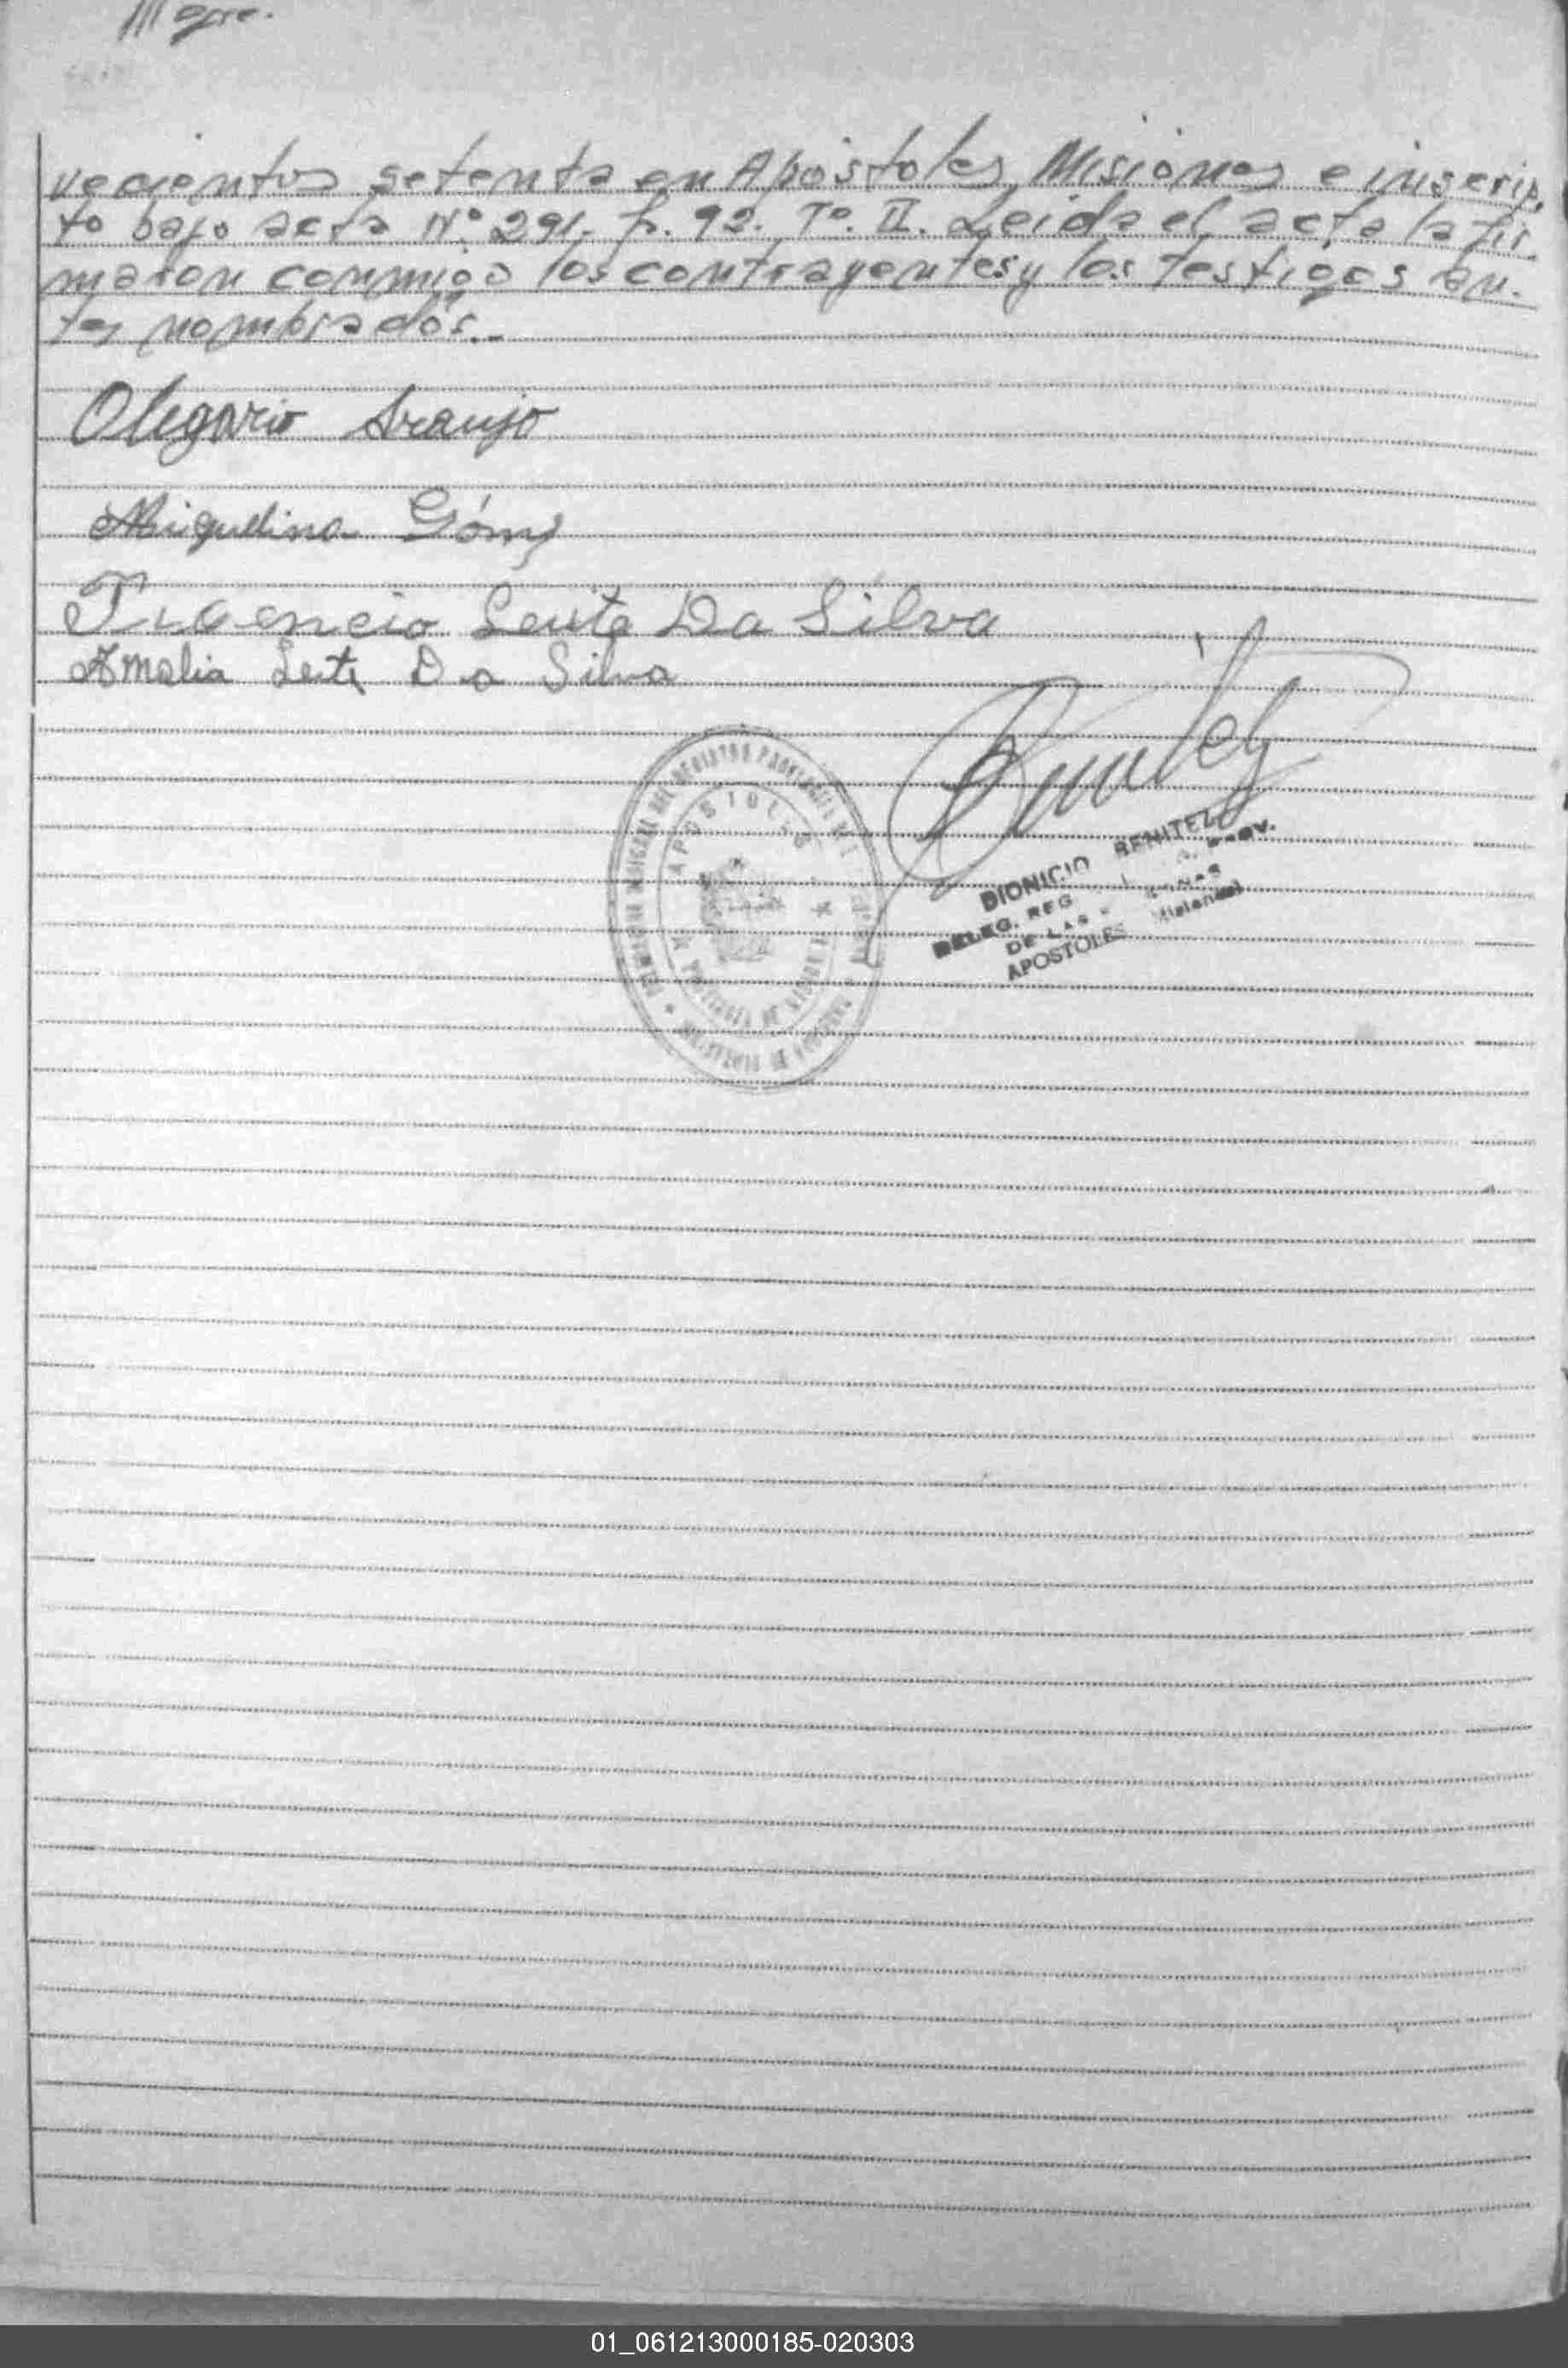 vecientos setenta en Apóstoles, Misiones e inscrip-
to bajo acta Nº 291. f. 92. Tº. II. Leida el acta la fir-
maron conmigo los contrayentes y los testigos an-
tes nombrados.-
Olegario Araujo
Miguelina Gómez
Leite Da Silva
Amalia Leite Da Silva
APOSTOLES
DIONICIO BENITEZ
DELEG. REG PROV.
DE LAS
APOSTOLES (Misiones)
01_061213000185-020303